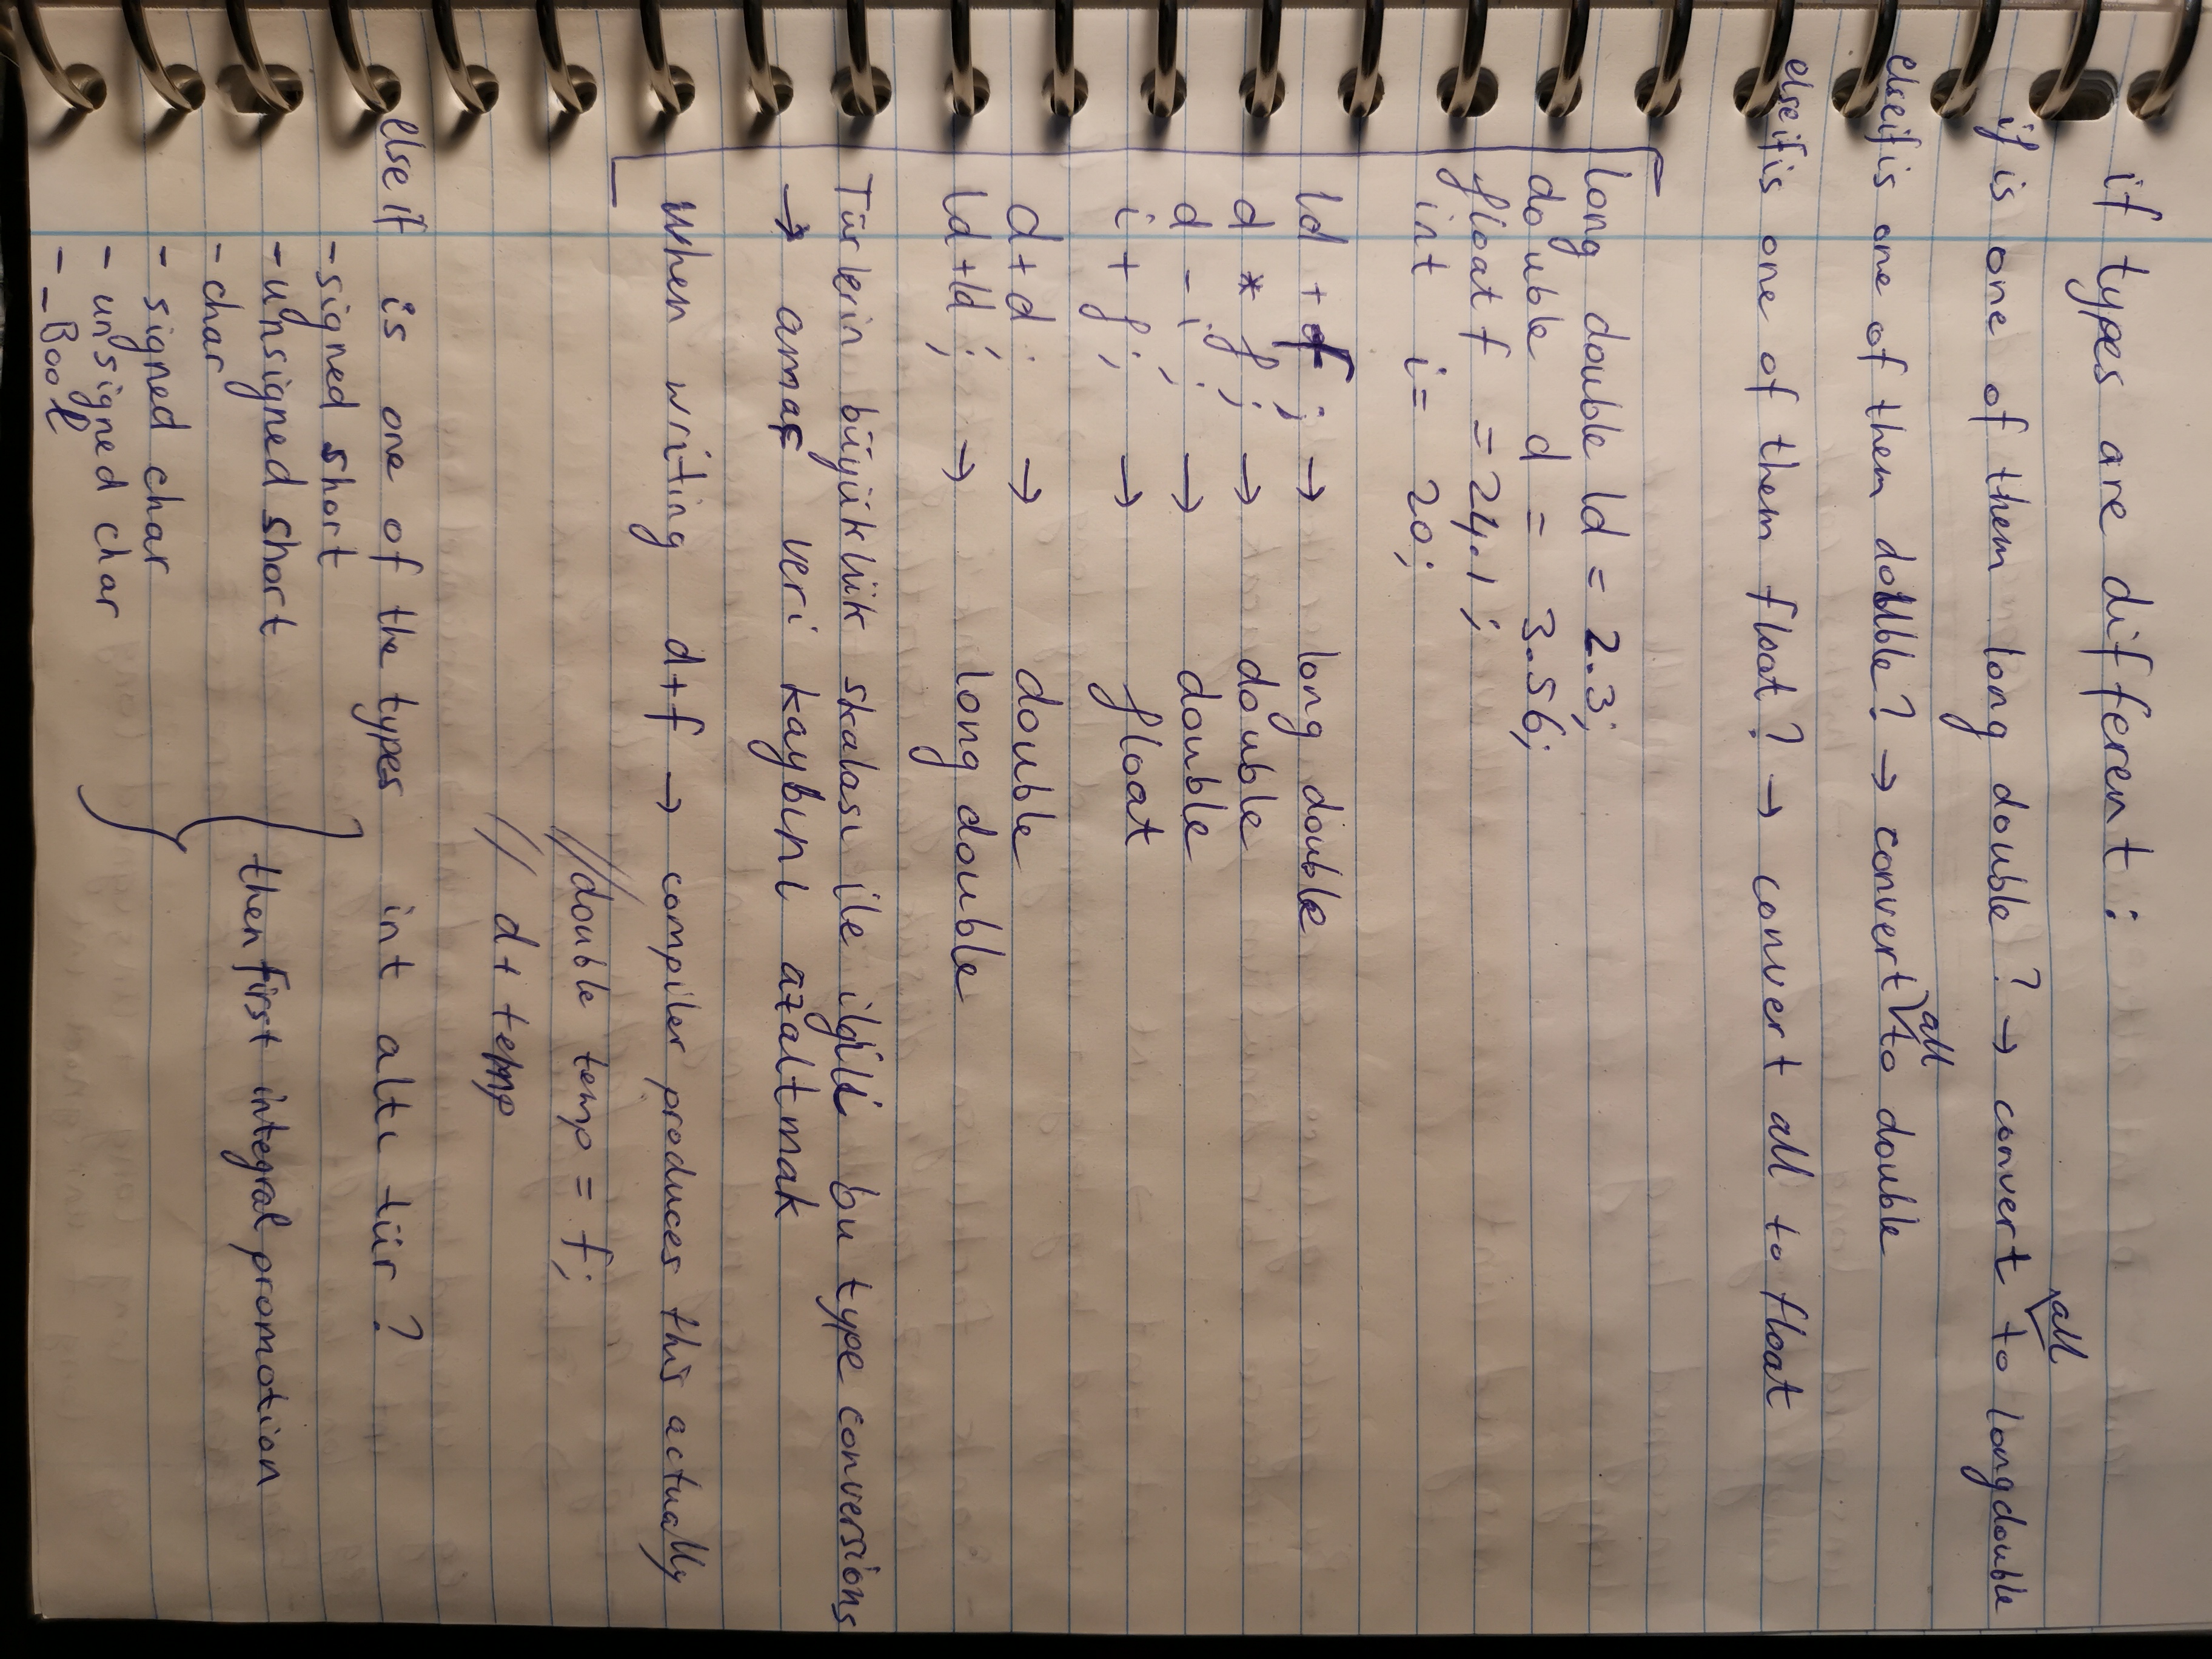 if types are different :
if is one of them long double ? → convert all to longdouble
else if is one of them double? → convert all to double
else if is one of them float? → convert all to float
long double ld = 2.3;
double d = 3.56;
float f = 24.1;
int i = 20;
ld + f ; → long double
d * f ; → double
d - i ; → double
i + f ; → float
d + d ; → double
ld + ld ; → long double
Türlerin büyüklük skalası ile ilgili bu type conversions
→ amaç veri kaybını azaltmak
When writing d+f → compiler produces this actually
//double temp = f;
// d + temp
else if is one of the types int altı tür ?
- signed short
- unsigned short
- char
then first integral promotion
- signed char
- unsigned char
- _Bool